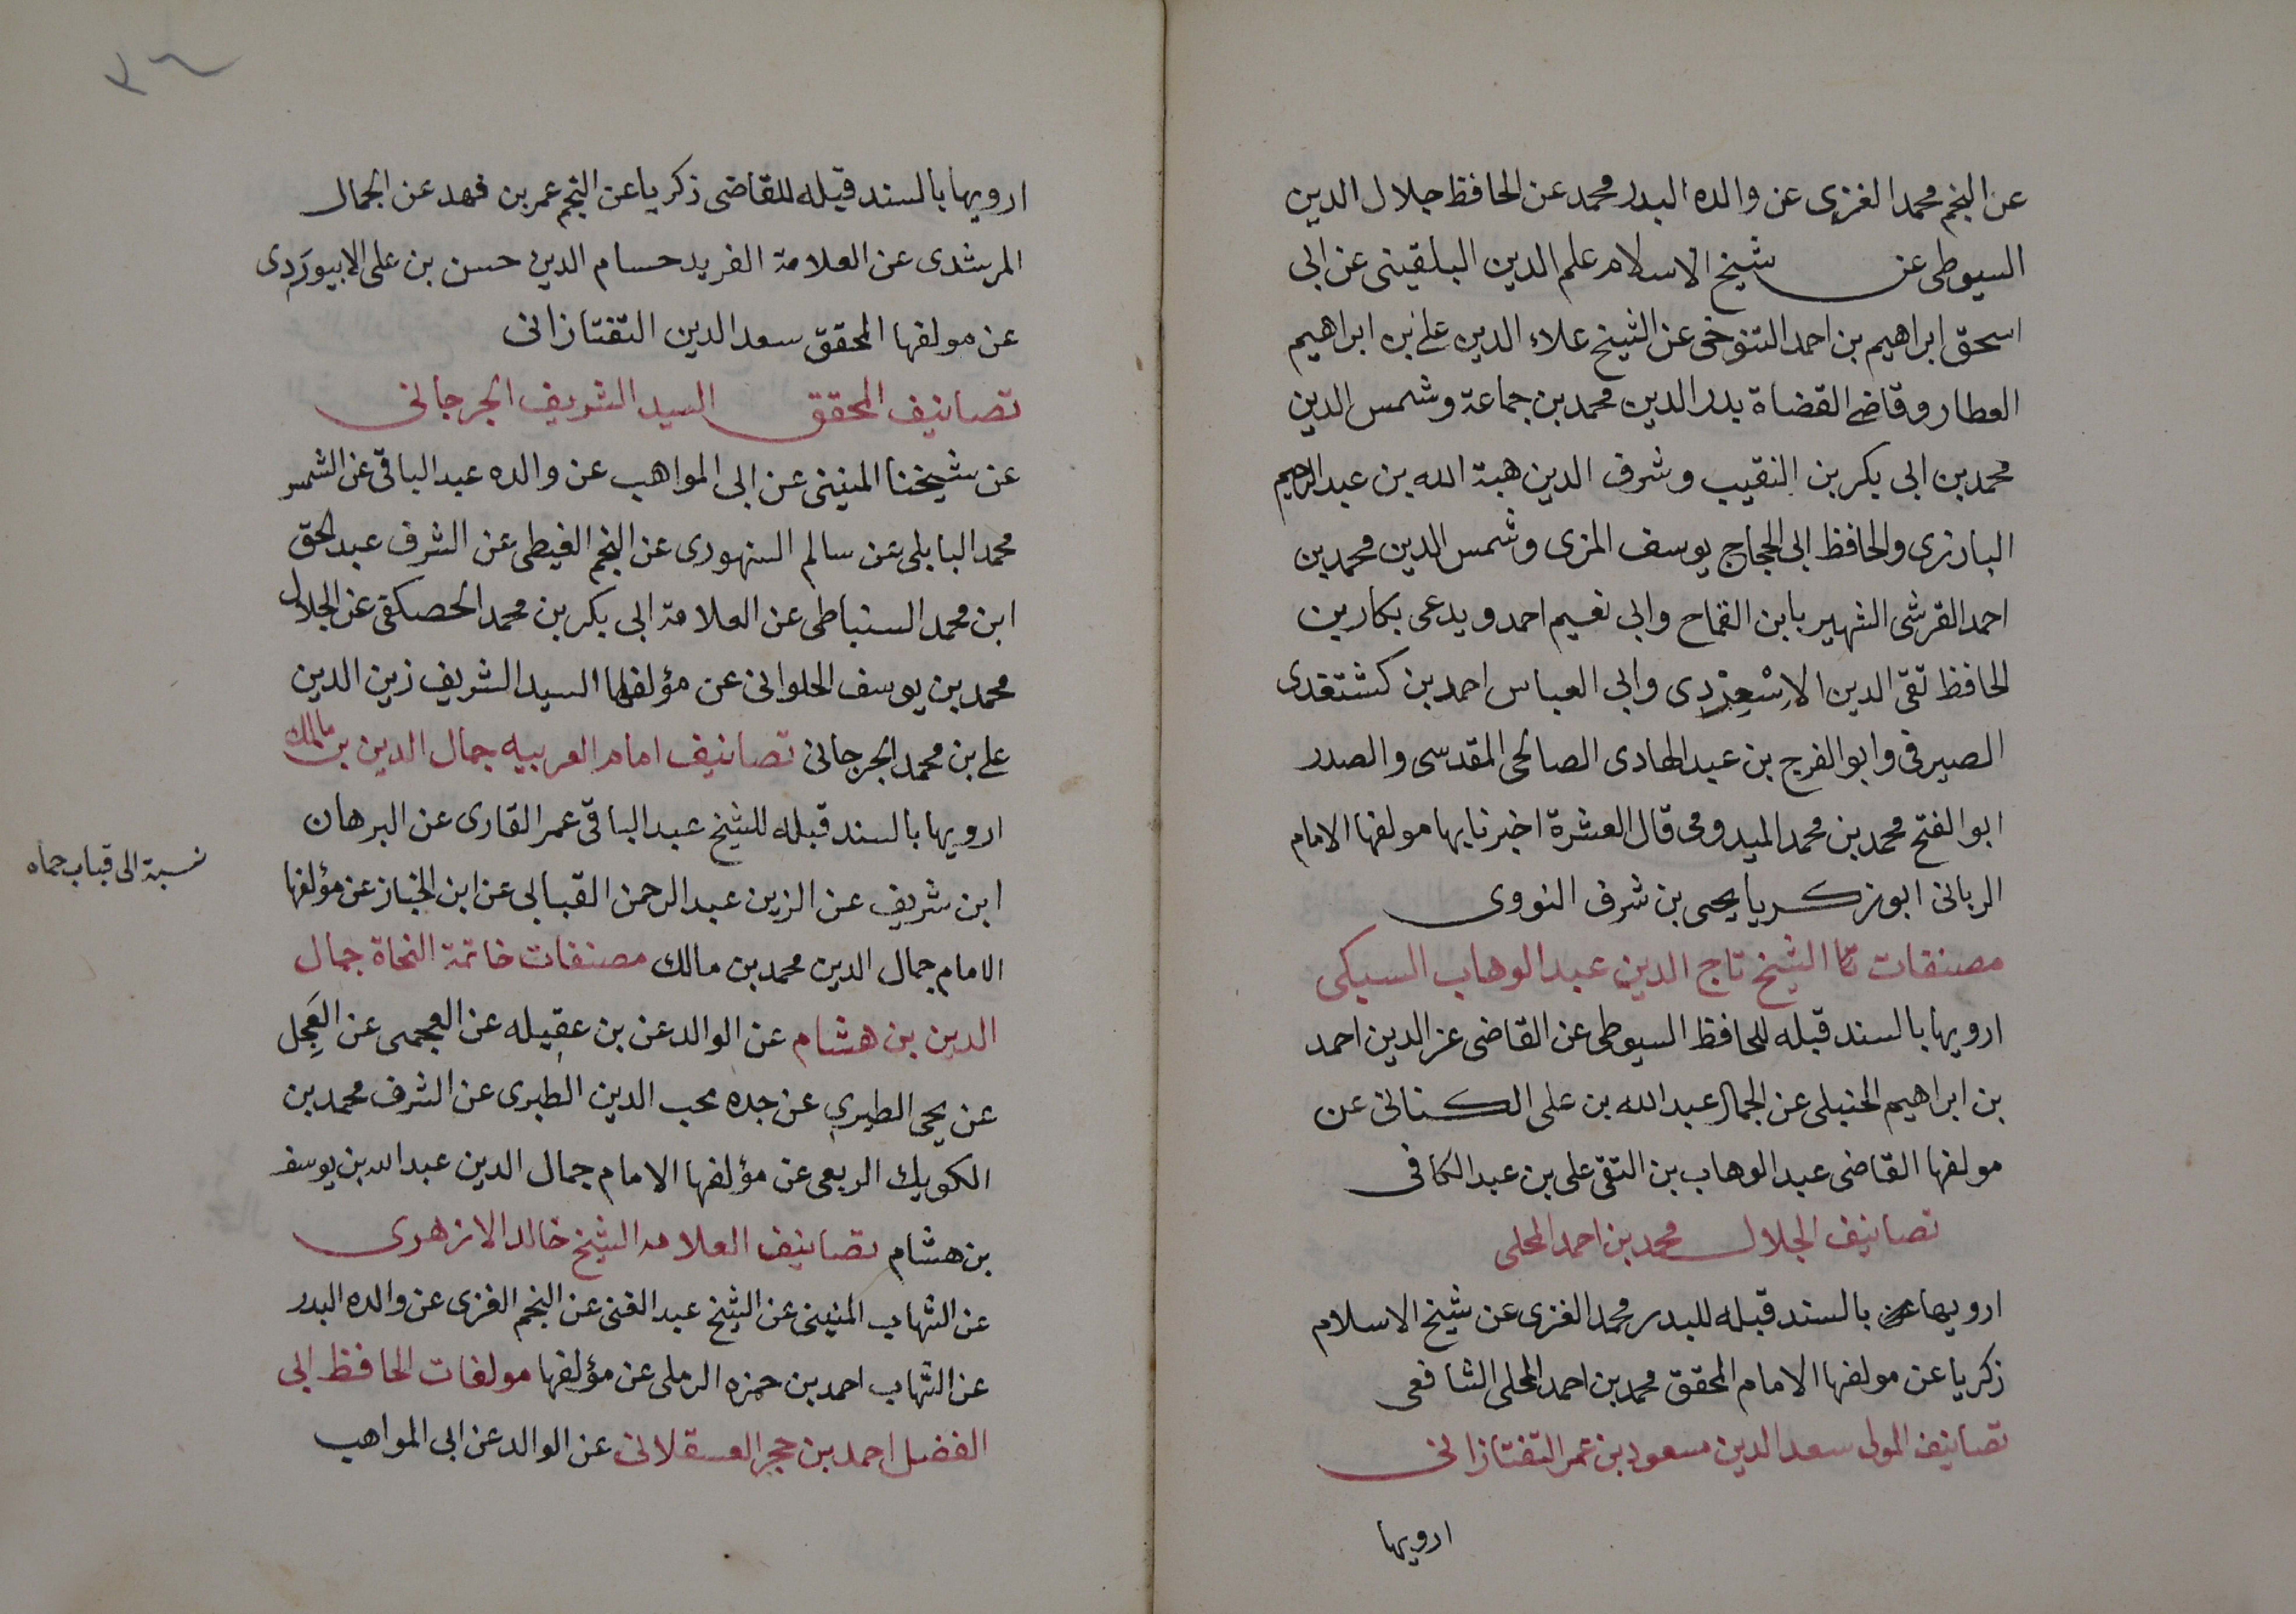 عن النجم محمد الغزى عن والده البدر محمد عن الحافظ جلال الدين
السيوطى عن شيخ الاسلام علم الدين البلقينى عن ابى
اسحق ابراهيم بن احمد التنوخى عن الشيخ علاء الدين على بن ابراهيم
العطار وقاضى القضاة بدر الدين محمد بن جماعة وشمس الدين
محمد بن ابى بكر بن النقيب وشرف الدين هبة الله بن عبد الرحيم
البارزى والحافظ ابى الحجاج يوسف المزى وشمس الدين محمد بن
احمد القرشى الشهير بابن القماح وابى نعيم احمد ويدعى بكار بن
الحافظ تقى الدين الاِسْعِرْدِى وابى العباس احمد بن كشتغدى
الصيرفى وابو الفرج بن عبد الهادى الصالحى المقدسى والصدر
ابو الفتح محمد بن محمد الميدومى قال العشرة اخبرنا بها مولفها الامام
الربانى ابو زكريا يحيى بن شرف النووى
مصنفات الشيخ تاج الدين عبد الوهاب السبكى
ارويها بالسند قبله للحافظ السيوطى عن القاضى عز الدين احمد
بن ابراهيم الحنبلى عن الجمال عبد الله بن على الكنانى عن
مولفها القاضى عبد الوهاب بن التقى على بن عبد الكافى
تصانيف الجلال محمد بن احمد المحلى
ارويها بالسند قبله للبدر محمد الغزى عن شيخ الاسلام
زكريا عن مولفها الامام المحقق محمد بن احمد المحلى الشافعى
تصانيف المولى سعد الدين مسعود بن عمر التفتازانى
ارويها
ارويها بالسند قبله للقاضى زكريا عن النجم عمر بن فهد عن الجمال
المرشدى عن العلامة الفريد حسام الدين حسن بن على الابيوَردى
عن مولفها المحقق سعد الدين التفتازانى
تصانيف المحقق السيد الشريف الجرجانى
عن شيخنا المنينى عن ابى المواهب عن والده عبد الباقى عن الشمس
محمد البابلى عن سالم السنهورى عن النجم الغيطى عن الشرف عبد الحق
ابن محمد السنباطى عن العلامة ابى بكر بن محمد الحصكفى عن الجلال
محمد بن يوسف الحلوانى عن مؤلفها السيد الشريف زين الدين
على بن محمد الجرجانى تصانيف امام العربيه جمال الدين بن مالك
ارويها بالسند قبله للشيخ عبد الباقى عمر القارى عن البرهان
ابن شريف عن الزين عبد الرحمن القبابى عن ابن الخباز عن مؤلفها
نسبة الى قباب حماه
الامام جمال الدين محمد بن مالك مصنفات خاتمة النحاة جمال
الدين بن هشام عن الوالد عن بن عقِيله عن العجمى عن العَجِل
عن يحيى الطبرى عن جده محب الدين الطبرى عن الشرف محمد بن
الكويك الربعى عن مؤلفها الامام جمال الدين عبد الله بن يوسف
بن هشام تصانيف العلامه الشيخ خالد الازهرى
عن الشهاب المنينى عن الشيخ عبد الغنى عن النجم الغزى عن والده البدر
عن الشهاب احمد بن حمزه الرملى عن مؤلفها مولفات الحافظ ابى
الفضل احمد بن حجر العسقلانى عن الوالد عن ابى المواهب